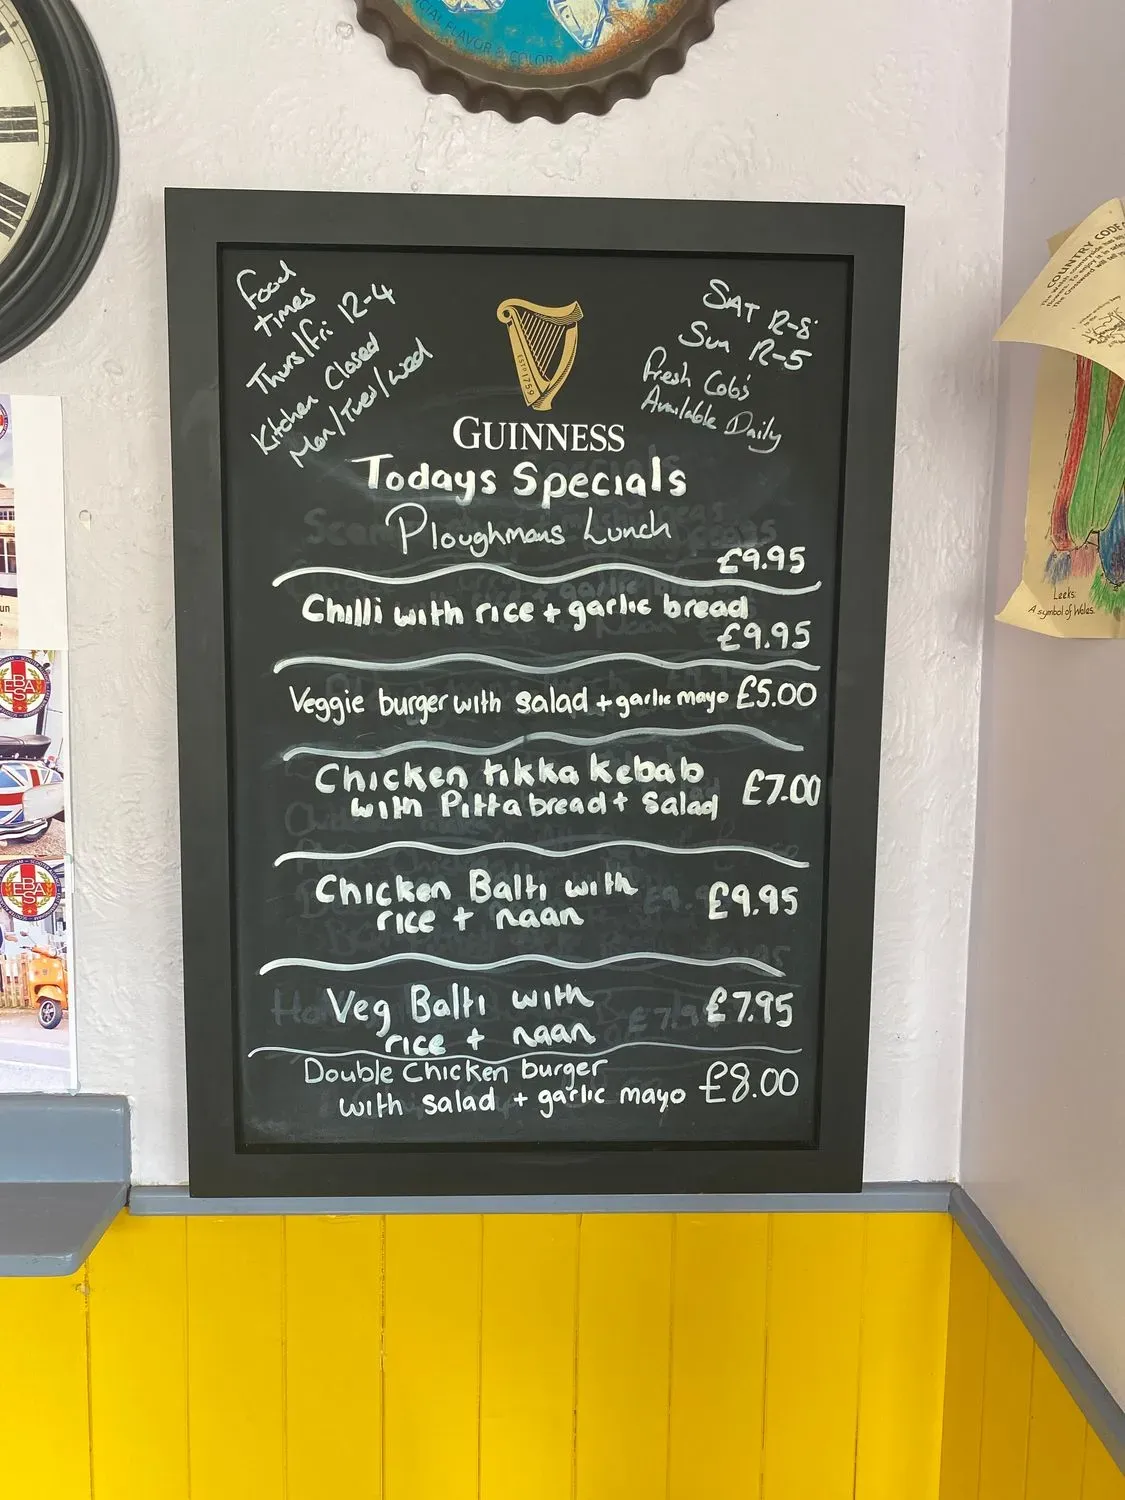 CIAL FLAVOR & COLOR
Food
times
Thurs/Fri 12-4
Kitchen Closed
Mon/Tues/Wed
SAT 12-8
Sun 12-5
Fresh Cobs
Available Daily
ESTD 1759
GUINNESS
Todays Specials
Ploughmans Lunch
£9.95
Chilli with rice + garlic bread
£9.95
Veggie burger with salad + garlic mayo £5.00
Chicken tikka kebab
with Pitta bread + salad £7.00
Chicken Balti with
rice + naan £9.95
Veg Balti with
rice + naan £7.95
Double Chicken burger
with salad + garlic mayo £8.00
COUNTRY CODE
Leeks:
A symbol of Wales.